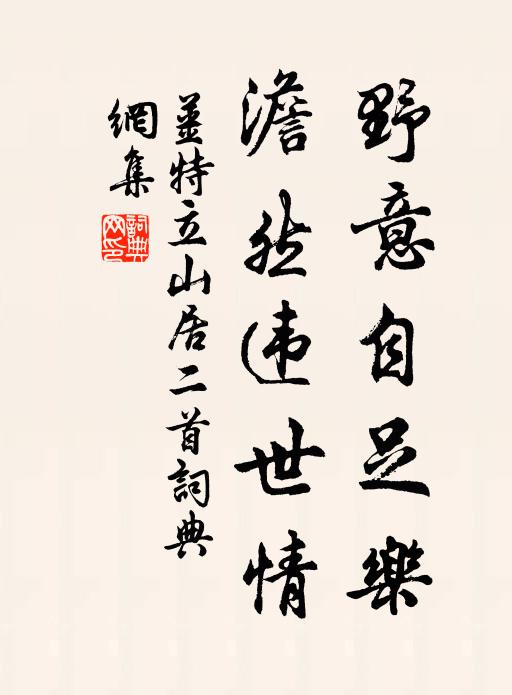 野意自足樂
澹然违世情
姜特立山居二首詞典
網集
詞典
网印